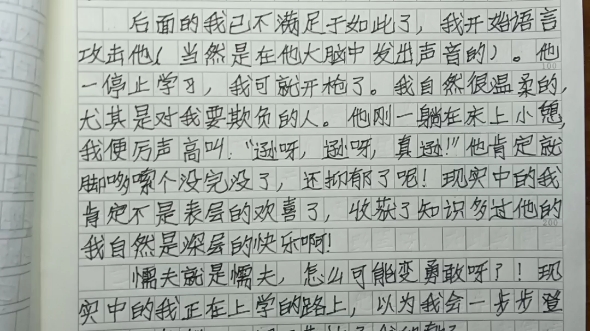 后面的我已不满足于如此了，我开始语言
攻击他（当然是在他大脑中发出声音的）。他
一停止学习，我可就开枪了。我自然很温柔的，
尤其是对我要欺负的人。他刚一躺在床上小憩，
我便厉声高叫："逊呀，逊呀，真逊！"他肯定就
脚哆嗦个没完没了，还抑郁了呢！现实中的我
肯定不是表层的欢喜了，收获了知识多过他的
我自然是深层的快乐啊！
懦夫就是懦夫，怎么可能变勇敢呀了！现
实中的我正在上学的路上，以为我会一步步登